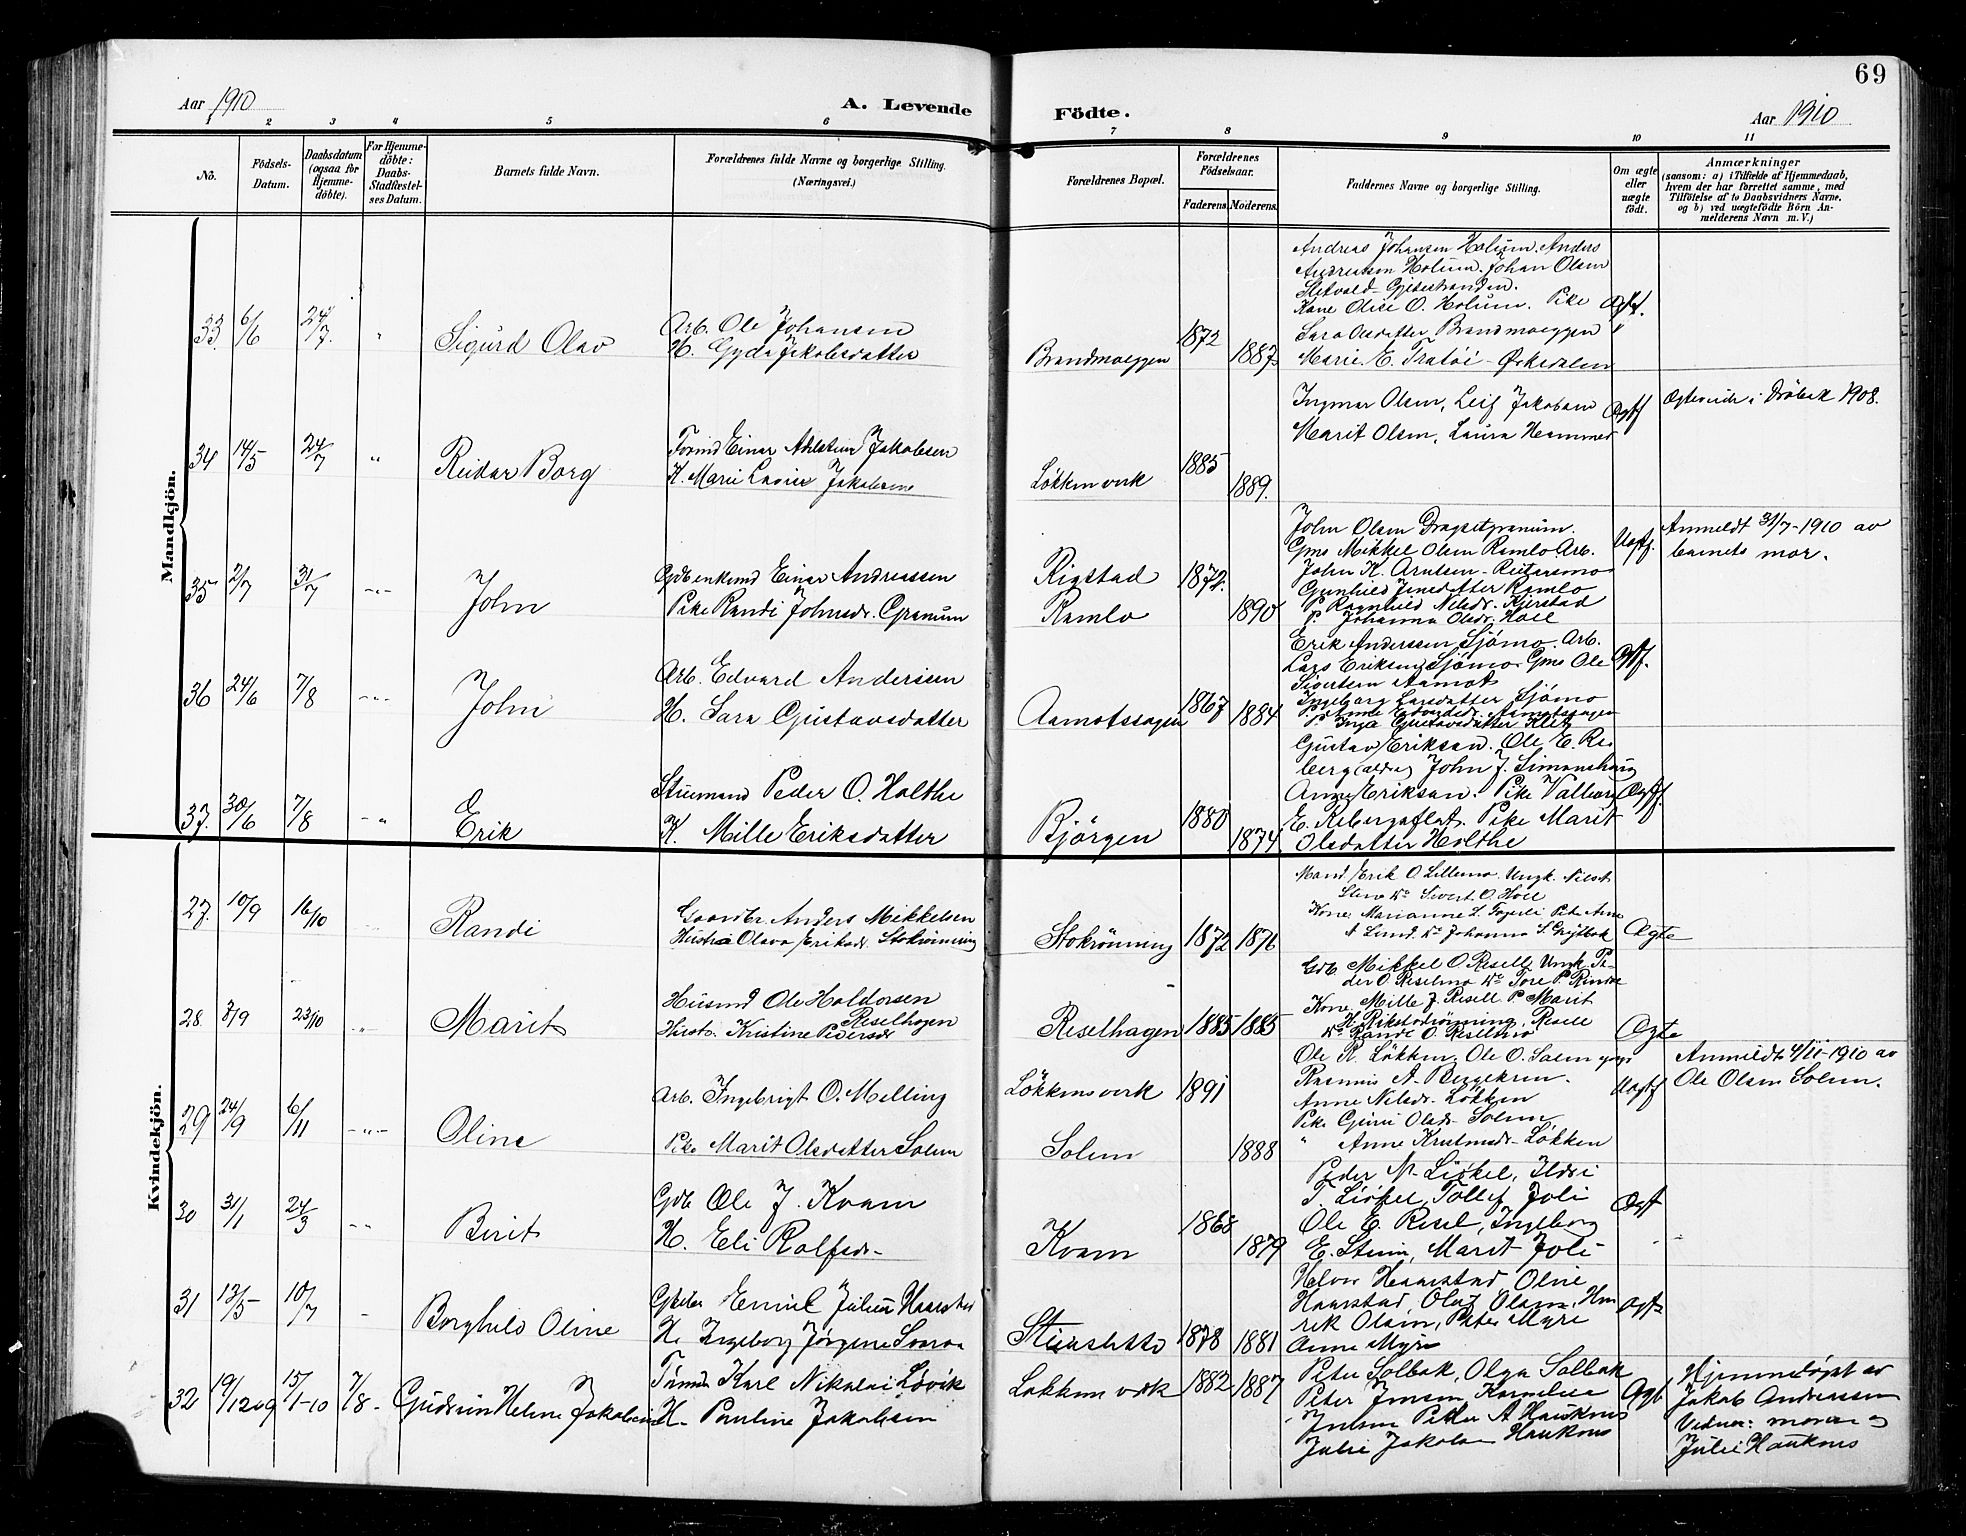 69
Aar 1910
A. Levende
Födte.
Aar 1910
1 2 3 4 5 6 7 8 9 10 11
No.
Födsels-
Datum.
Daabsdatum
(ogsaa for
Hjemme-
döbte).
For Hjemme-
döbte:
Daabs-
Stadfæstel-
ses Datum.
Barnets fulde Navn.
Forældrenes fulde Navne og borgerlige Stilling.
(Næringsvei.)
Forældrenes Bopæl.
Forældrenes
Födselsaar.
Faderens.
Moderens.
Faddernes Navne og borgerlige Stilling.
Om ægte
eller
uægte
födt.
Anmærkninger
(saasom: a) i Tilfælde af Hjemmedaab,
hvem der har forrettet samme, med
Tilföielse af to Daabsvidners Navne,
og b) ved uægtefödte Börn An-
melderens Navn m. V.)
Mandkjön.
33. 6/6 24/7. " Sigurd Olav
Arb. Ole Johansen
H. Gyda Jakobsdatter
Brandmoeggen 1872 1887
Andreas Johansen Holum. Anders
Andreassen Holum. Johan Olsen
Sletvold - Gjeitestranden.
Kone Olise O. Holum. Pike
Sara Olsdatter Brandmoeggen
Marie E. Tratöi - Örkedalen
Ægtf.
34 14/5 24/7 " Reidar Borg
Formd Einar Jakobsen
K. Marie Jakobsen
Lökken verk 1885 1889.
Ingmar Olsen, Leif Jakobsen
Marit Olsen, Laura Hammer
Ægtf
Ægteviede i Dröbak 1908.
35 2/7 31/7 -"- John
Gdb. enkemd Einar Andreassen
Pike Randi Johnsdr. Granum
Rigstad
Ramlo
1872. 1890
John Olsen Dragsetgranum.
Gms Mikkel Olsen Ramlo Arb.
John K. Arntsen
Gunhild Jensdatter Ramlo
P. Ragnhild Nilsdr. Kjerstad
P. Johanna Olsdr. Hoel
Uægtf.
Anmeldt 31/7-1910 av
barnets mor.
36 24/6 7/8 -"- John
Arb. Edvard Andersen
H. Sara Gustavsdatter
Aamotssagen 1867 1884
Erik Anderssen Sjömo. Arb.
Lars Eriksen Sjömo. Gms Ole
Sivertsen Aamot
Ingeborg Larsdatter Sjömo
P. Anne Edvardsdr. Aamotssagen
P. Inga Gustavsdatter
Ægtf.
37. 30/6 7/8 -"- Erik
Stuemand Peder O. Holthe
K. Mille Eriksdatter
Björgen 1880 1874
Gustav Eriksen. Ole E. Res
berg (ældre) John J. Simonshaug
Anne Eriksen. Pike Valborg
E. Resbergsflat. Pike Marit
Olsdatter Holthe
Ægtf.
Kvindekjön.
27. 10/9 16/10 Randi
Gaardbr. Anders Mikkelsen
Hustru Olava Eriksdr. Stokrönning
Stokrönning 1872 1876
Mand Erik O. Lillemo. Ungk. Nils
Steno do Sivert O. Hoel
Kone Marianne L. Fagerli Pike Anne
A Lund. do Johanna S. Grytbak
Ægte
28. 3/9 23/10 -"- Marit
Husmd Ole Haldorsen
Reselhagen
Hustr. Kristine Pedersdr
Reselhagen 1885 1885
Gdb. Mikkel O. Resell Ungk. Pe-
der O. Reselmo do Tore P. Rindre
Kone Mille J. Resell P. Marit
do Randi O. Reselmo
Ægte
29 24/9 6/11 -"- Oline
Arb. Ingebrigt O. Melling
Pike Marit Olsdatter Solem
Lökkens verk
Solem
1891 1888
Ole R. Lökken, Ole O. Solem
Rasmus A. Beggekren.
Anne Nilsdr. Lökken
Pike Guri Olsdr. Solem
" Anne Knutsdr. Lökken
Uægtf
Anmeldt 4/11-1910 av
Ole Olsen Solem.
30 31/1 24/3 -"- Berit
Gdb Ole J. Kvam
H. Eli Rolfsdr-
Kvam 1868 1879
Peder M. Liökel, Ildri
T. Liökel, Tollef Joli
Ole E. Resel, Ingeborg
E. Stein, Marit Joli
Ægtf
31 13/5 10/7 - Borghild Oline
Emil Julius Haarstad
H. Ingeborg Jörgene
1878 1881
Halvor Haarstad Oline
Haarstad, Oluf Olsen, Hen
rik Olsen, Peter Myre
Anne Myre
Ægtf
32 19/12 09 15/1-10 7/8- Gudrun Helene Jakobsen
Karl Nikolai Lövik
H. Pauline Jakobsen
Lökken verk 1882 1887
Peter Solbak, Olga Solbak
Peter Jensen Kornelia
Jensen Peter A Hauknes
Julie Jakobsen Hauknes
Ægtf
Hjemmedöpt av
Jakob Andreassen
Vidner: moren og
Julie Hauknes